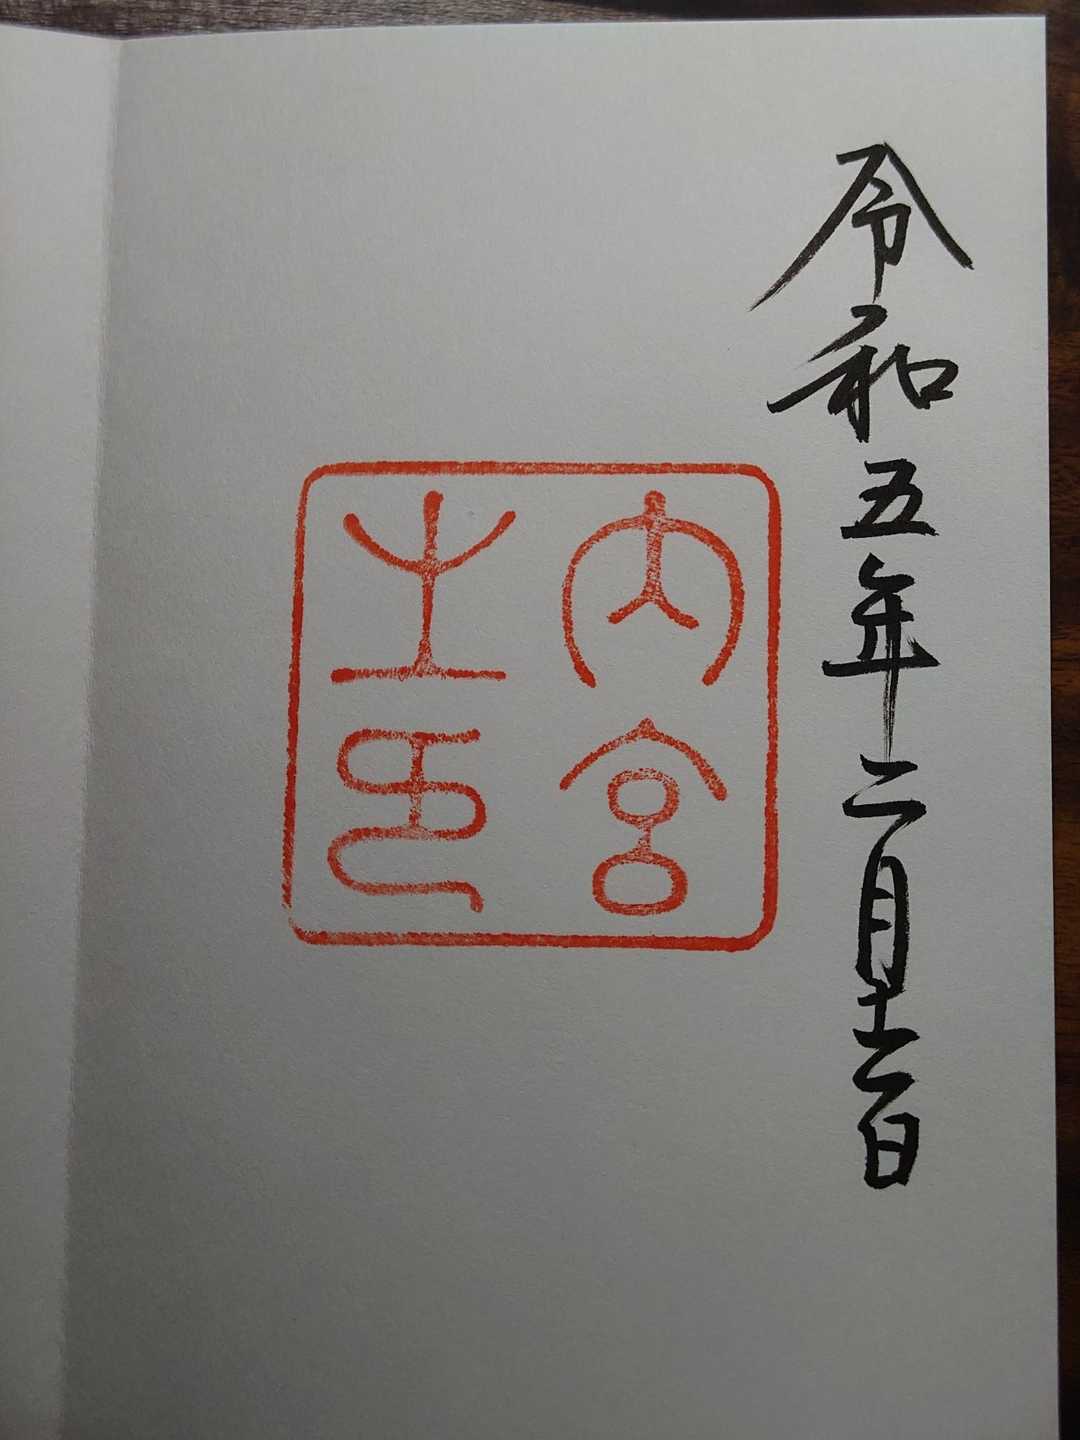 令和五年二月十三日
内宮
之印